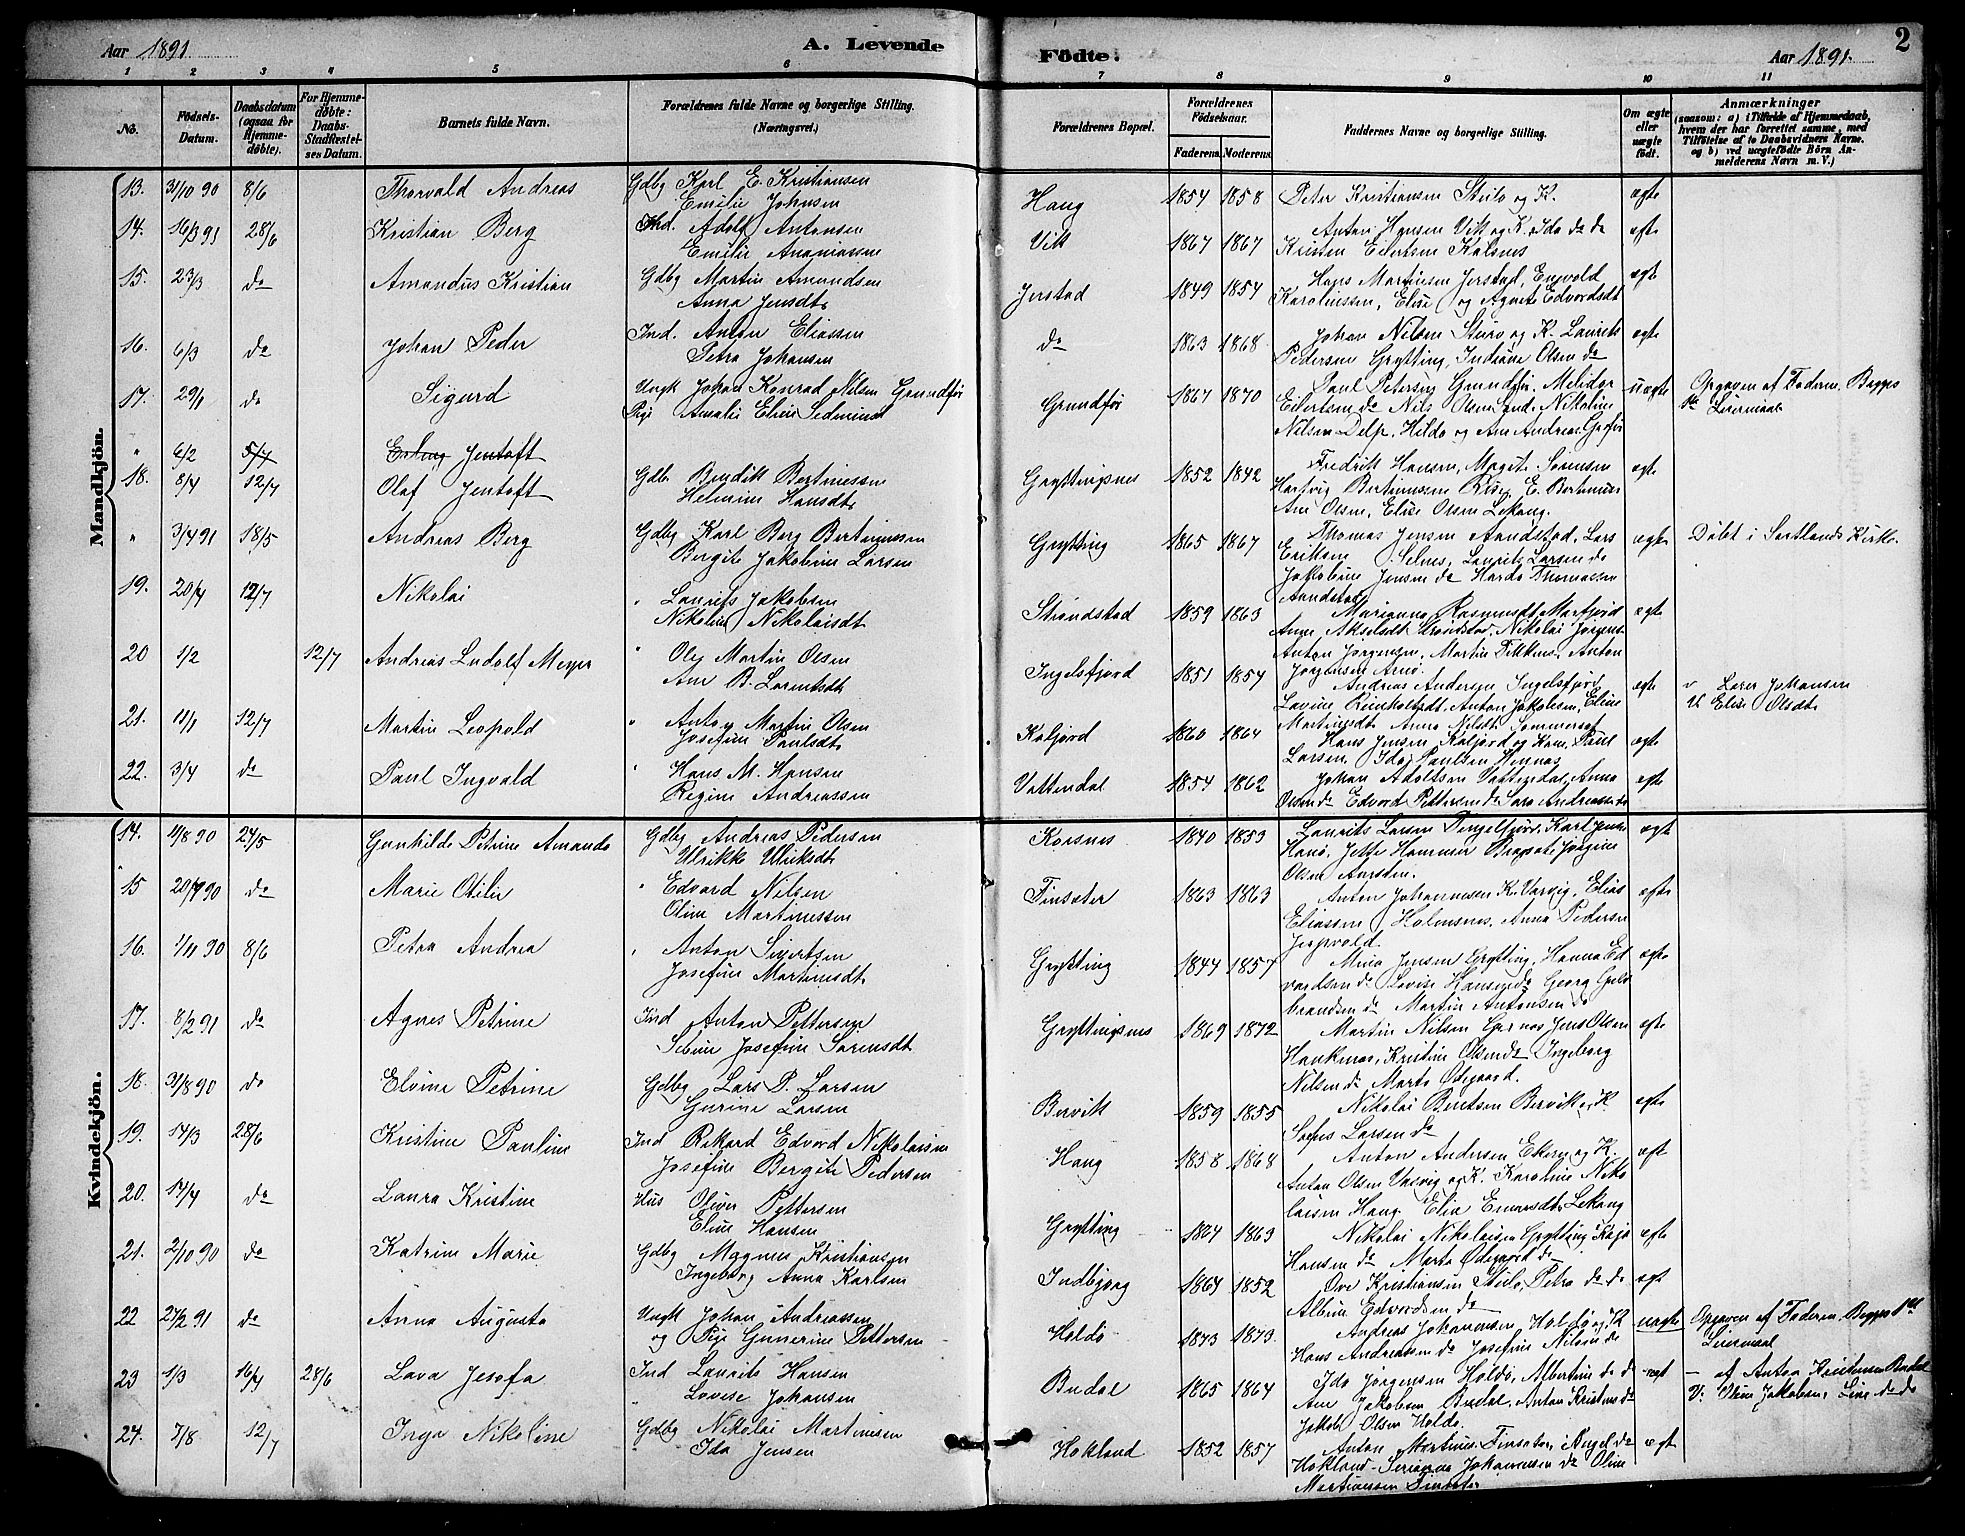 Aar 1891. A. Levende
1 2 3 4 5 6
No. Födsels-Datum. Daabsdatum (ogsaa for Hjemme-döbte). For Hjemme-döbte: Daabs-Stadfæstel-ses Datum. Barnets fulde Navn. Forældrenes fulde Navne og borgerlige Stilling. (Næringsvei.)
Mandkjön.
13. 31/10 90 8/6 Thorvald Andreas Gdbg Karl E. Kristiansen
Emilie Johnsen
14. 16/3 91 28/6 Kristian Berg Ind. Adolf Antonsen
Emilie Ananiassen
15. 23/3 do Amandus Kristian Gdbg Martin Amundsen
Anna Jensdt
16. 6/3 do Johan Peder Ind. Anton Eliassen
Petra Johansen
17. 29/1 do Sigurd Ungk Johan Konrad Nilsen Grundfør
Pige Amalie Eline
" 6/2 5/7 Erling Jentoft
18. 8/4 12/7 Olaf Jentoft Gdb. Bendik Bertinessen
Helmine Hansdt
" 3/4 91 18/5 Andreas Berg Gdbg Karl Berg Bertinussen
Bergite Jakobine Larsen
19. 20/4 12/7 Nikolai " Laurits Jakobsen
Nikoline Nikolaisdt
20 1/2 12/7 Andreas Ludolf Meyer " Ole Martin Olsen
Ane B. Lorentsdt
21. 11/1 12/7 Martin Leopold " Anton Martin Olsen
Josefine Paulsdt
22. 3/4 do Paul Ingvald " Hans M. Hansen
Regine Andreassen
Kvindekjön.
14. 11/8 90 24/5 Gunhilde Petrine Amanda Gdbg Andreas Pedersen
Ulrikke Ulriksdt
15 20/9 90 do Marie Otilie " Edvard Nilsen
Oline Martinussen
16. 1/11 90 8/6 Petra Andrea " Anton Sivertsen
Josefine Martinusdt
17. 8/2 91 do Agnes Petrine Ind Anton Pettersen
Josefine Sørensdt
18. 31/8 90 do Elvine Petrine Gdbg Lars P. Larsen
Gurine Larsen
19. 14/3 28/6 Kristine Pauline Ind Rikard Edvard Nikolaisen
Josefine Bergite Pedersen
20. 14/4 do Laura Kristine Hus Oliver Pettersen
Eline Hansen
21. 2/10 90 do Katrine Marie Gdbg Magnus Kristiansen
Ingeborg Anna Karlsen
22 27/2 91 do Anna Augusta Ungk Johan Andreassen
og Pige Gunerine Pettersen
23 1/3 16/4 28/6 Lava Josefa Ind Laurits Hansen
Lovise Johansen
24. 7/8 12/7 Inga Nikoline Gdbg Nikolai Martinsen
Ida Jensen
Födte. Aar 1891. 2
7 8 9 10 11
Forældrenes Bopæl. Forældrenes Födselsaar. Faderens Moderens Faddernes Navne og borgerlige Stilling. Om ægte eller uægte födt. Anmærkninger (saasom: a) i Tilfælde af Hjemmedaab, hvem der har forrettet samme, med Tilföielse af to Daabsvidners Navne, og b) ved uægtefödte Börn Anmelderens Navn m. V.)
Haug 1854 1858 Peter Kristiansen Stielo og K. ægte
Vik 1867 1867 Anton Hansen Vik og K. Ida do do
Kristen Eilertsen Kalsnes ægte
Jerstad 1849 1854 Hans Martinsen Jerstad, Engvold
Karoliussen, Elise og Agnete Edvardsdt ægte
do 1863 1868 Johan Nilsen og K. Laurits
Pedersen Grytting, Indiane Olsen do ægte
Grundfør 1867 1870 Paul Petersen Grundfør, Melidor
Eilertsen do Nils Olsen Sand, Nikoline
Nilsen Delp, Hilda og Ane Andreas. uægte Opgaven af Faderen. Begges
1ste Leiermaal
Gryttingsnes 1852 1842 Fredrik Hansen, Magit Sørensen
Hartvig Bertinussen E. Bertinus
Ane Olsen, Elise Olsen Lekang. ægte
Grytting 1865 1867 Thomas Jensen Aandstad, Lars
Eriksen Selnes, Laurits Larsen do
Jakobine Jensen do Thomassen
Aandstad ægte Døbt i Sortlands Kirke.
Strandstad 1859 1863 Rasmusdt
Ane Akselsdt Strandstad, Nikolai Jørgens.
Anton Jørgensen, Martin Anton
Jørgensen ægte
Ingelsfjord 1851 1854 Andreas Andersen Ingelsfjord
Lavine Reinholtsdt, Anton Jakobsen, Eline
Martinusdt Anna Nilsdt Sommerset ægte v Lærer Johansen
V. Elise Olsdt
Kaljord 1860 1864 Hans Jensen Kaljord og Kone, Paul
Larsen, Ida Paulsen Hennes ægte
Vattendal 1854 1862 Johan Adolfsen Vattendal, Anna
Olsen do Edvard Pettersen do Sara Andreassen do ægte
Korsnes 1840 1853 Laurits Larsen Karl Jens.
Hanø, Jette Hammer Jørgine
Olsen ægte
Finsæter 1863 1863 Anton Johannesen K. Varvig, Elias
Eliassen Holmsnes, Anna Pedersen ægte
Grytting 1844 1857 Mina Jensen Grytting, Hanna Ed
vardsen do Lovise Hansen do Georg Guld
brandsen do Martin Antonsen do ægte
Gryttingsnes 1869 1872 Martin Nilsen Jens Olsen
Hauknes, Kristine Olsen do Ingeborg
Nilsen do Marta Ødegaard. ægte
Bervik 1859 1855 Nikolai Bentsen Bervik, K.
Sofus Larsen do ægte
Haug 1858 1868 Anton Andersen og K.
Anton Olsen Varvig og K. Karoline Niko
laisen Haug. Elin Lekang ægt
Grytting 1864 1863 Nikolai Nikolaisen Grytting,
Hansen do Marta Ødegaard do ægte
Indbjørg 1864 1852 Ove Kristiansen Stielo, Petra do do
Albine Edvardsen do ægt
Holdø 1873 1873. Andreas Johansen, Holdø og K.
Hans Andreassen do Josefine Nilsen do uægte Opgaven af Faderen. Begges 1ste
Leiermaal
Budal 1865 1864 Ida Jørgensen Holdø, Albertine do d
Ane Jakobsen Budal, Anton Kristens. do
Jakob Olsen Holdø. ægt — af Anton Kristensen Budal
V. Oline Jakobsen, Line do do
Hokland 1852 1857 Anton Martinus. Finsæter, do
Hokland Johannesen do Oline
Martinsen Finsæter ægt